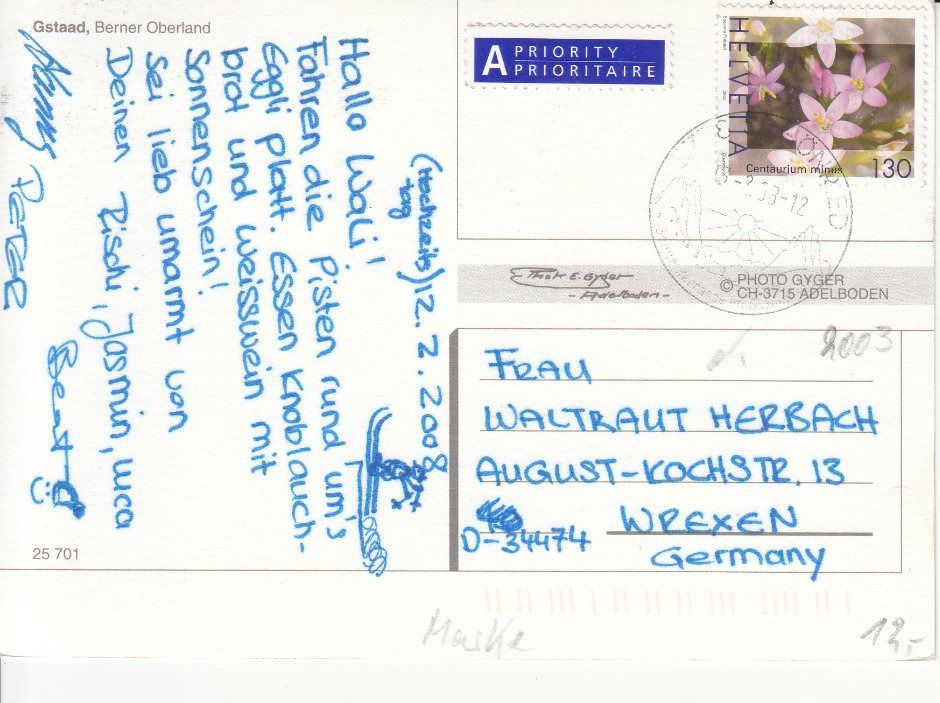 Gstaad, Berner Oberland
(Hochzeits) 12.2.2008
tag
Hallo Wali!
Fahren die Pisten rund um's
Eggli platt. Essen Knoblauch-
brot und Weisswein mit
Sonnenschein!
Sei lieb umarmt von
Deinen Rischi, Jasmin, Luca
PETER
25 701
A PRIORITY
PRIORITAIRE
HELVETIA
Centaurium minus
130
Photo E. Gyger
- Adelboden -
© PHOTO GYGER
CH-3715 ADELBODEN
2003
FRAU
WALTRAUT HERBACH
AUGUST-KOCHSTR. 13
D-34474 WREXEN
Germany
Marke
12,-